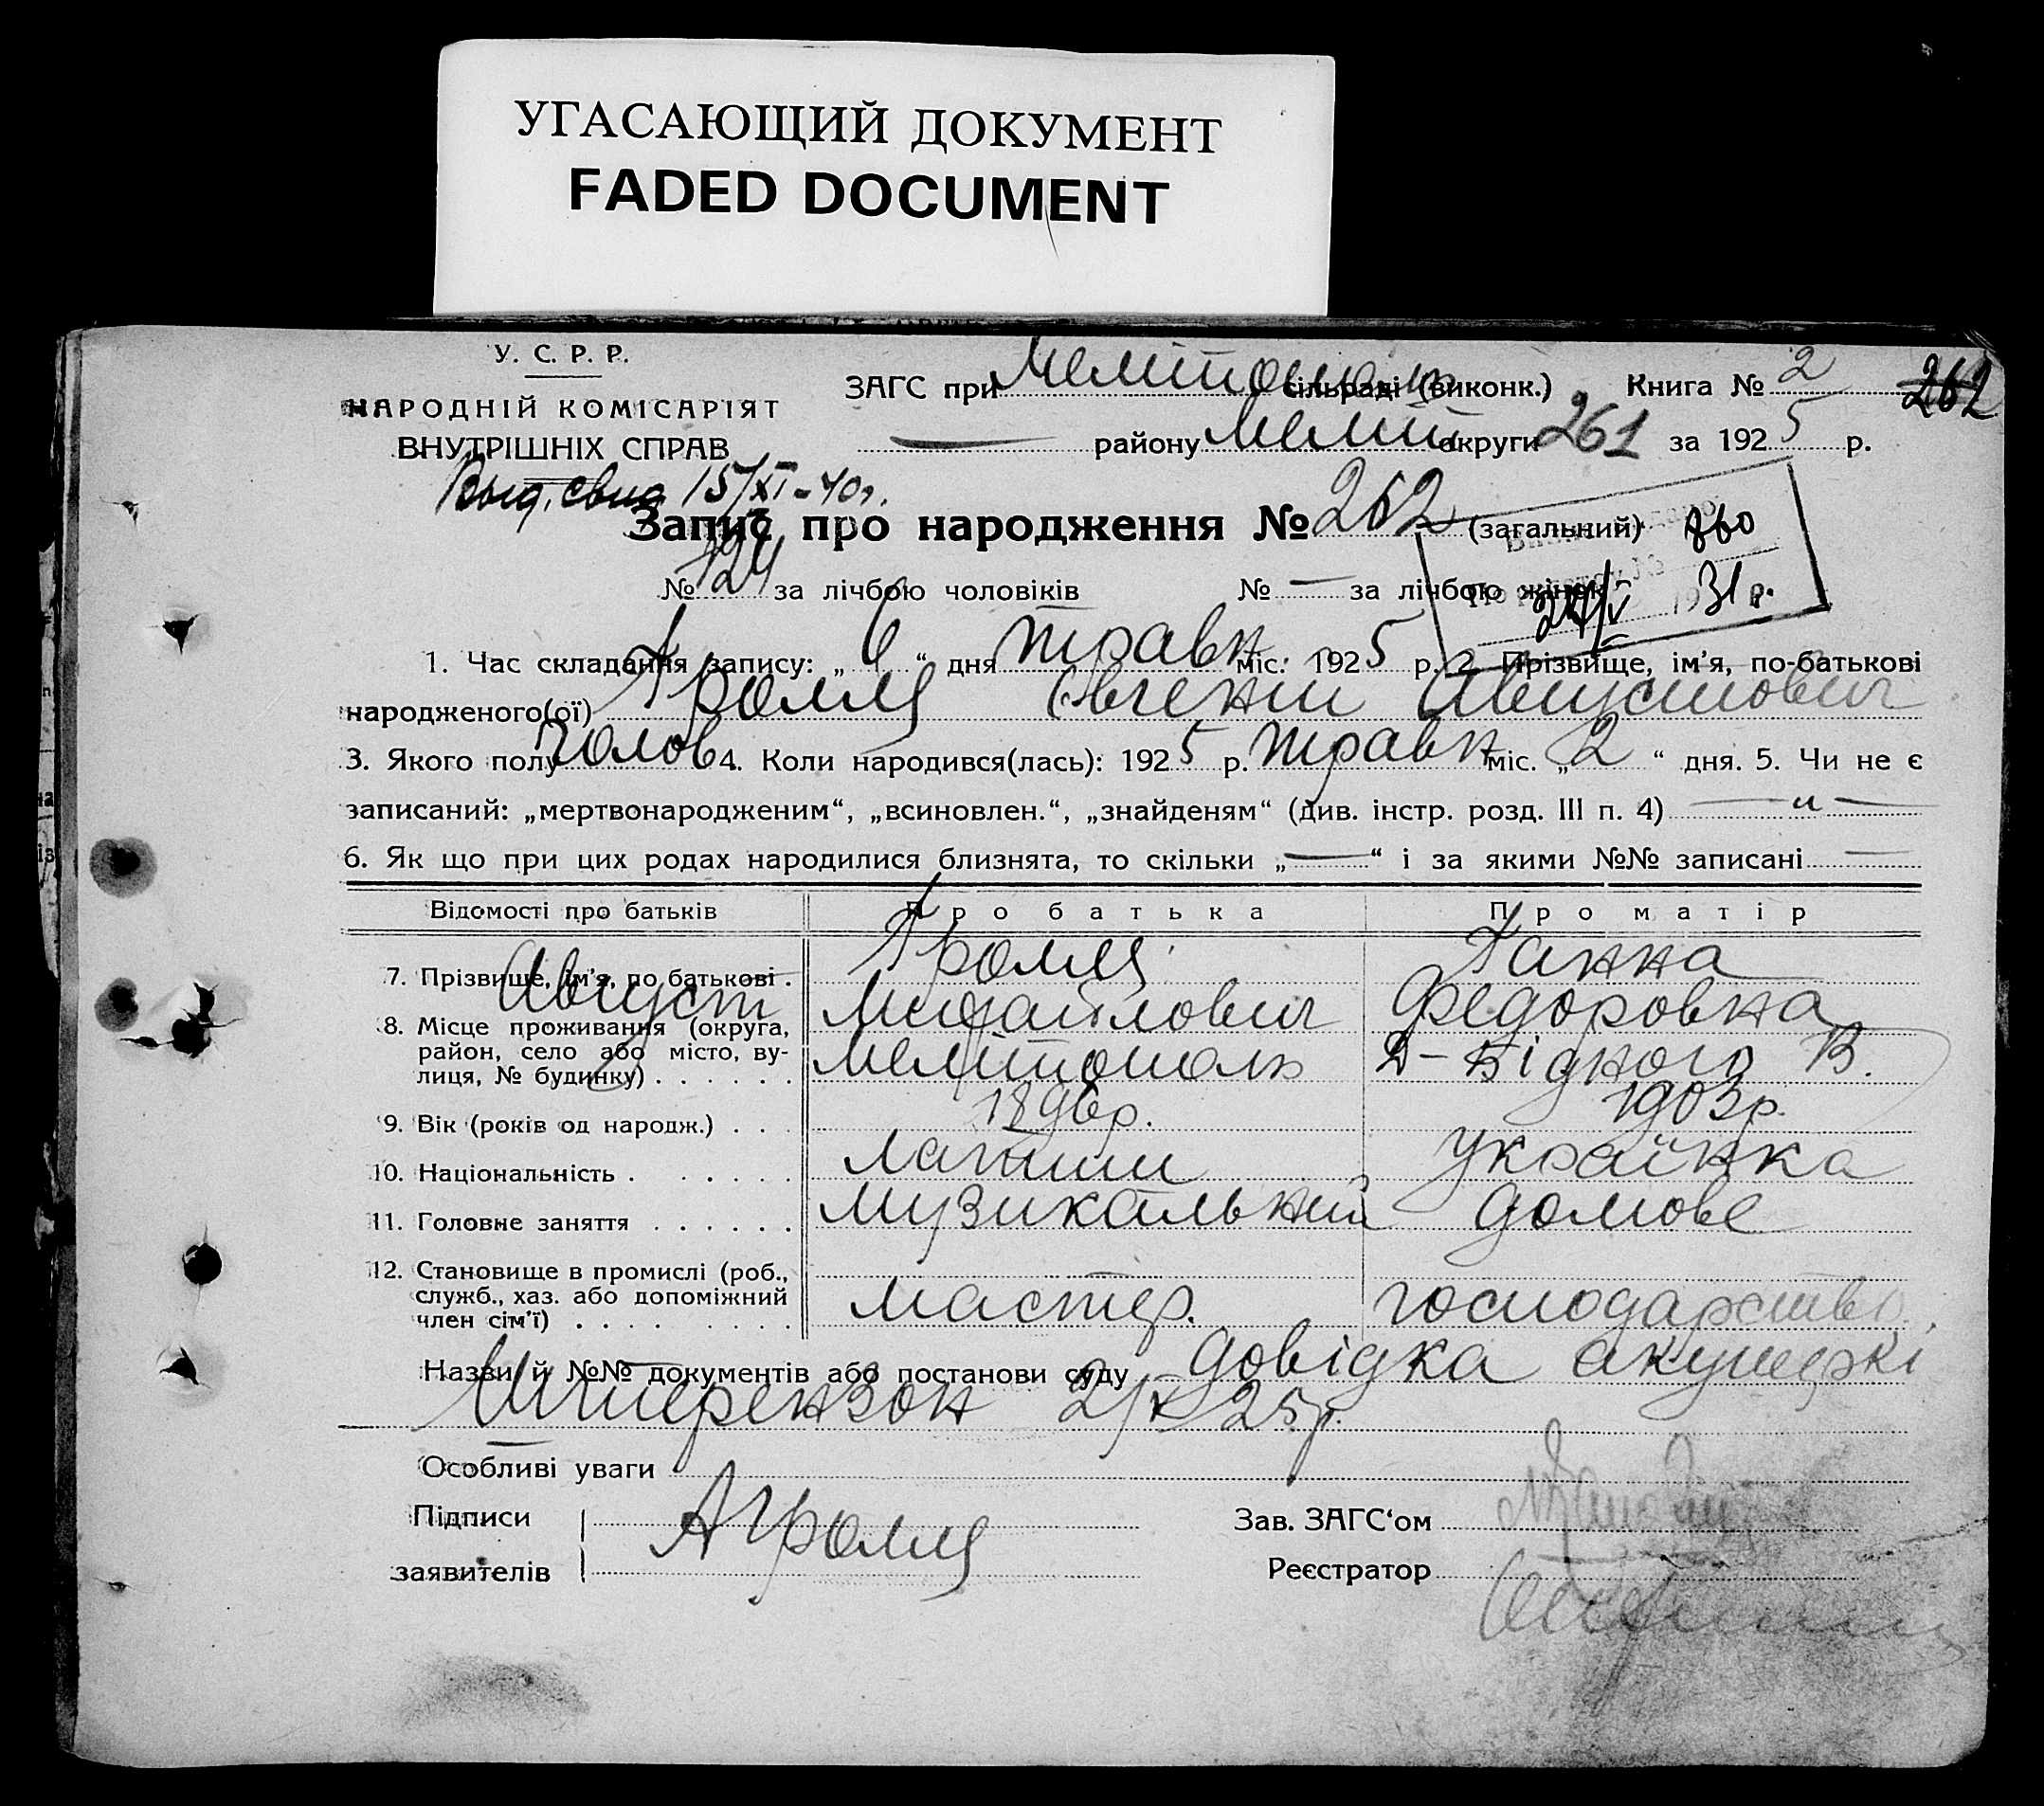 УГАСАЮЩИЙ ДОКУМЕНТ
FADED DOCUMENT
У. С. Р. Р.
НАРОДНІЙ КОМІСАРІЯТ
ВНУТРІШНІХ СПРАВ
ЗАГС при Мелітополь сільраді (виконк.) Книга № 2 262
— району Меліт округи 261 за 1925 р.
Выд. свид 15/XI-40г.
Запис про народження № 262 (загальний) 860
№ 124 за лічбою чоловіків № — за лічбою жінок 24/V 1931 р.
1. Час складання запису: „6“ дня травн міс. 1925 р. 2. Прізвище, ім'я, по-батькові
народженого(ої) Гролля Євгеній Августович
3. Якого полу чолов 4. Коли народився(лась): 1925 р. травн міс. „2“ дня. 5. Чи не є
записаний: „мертвонародженим“, „всиновлен.“, „знайденям“ (див. інстр. розд. III п. 4) — „ —
6. Як що при цих родах народилися близнята, то скільки „—“ і за якими №№ записані —
Відомості про батьків Про батька Про матір
7. Прізвище, ім'я, по батькові . Гролля Ганна
Август Михайлович Федоровна
8. Місце проживання (округа, район, село або місто, вулиця, № будинку) . . . . . . Мелітополь Д-Бідного В.
9. Вік (років од народж.) . . . 1896р. 1903р.
10. Національність . . . . . . Латиш Українка
11. Головне заняття . . . . . . музикальний домове
12. Становище в промислі (роб., служб., хаз. або допоміжний член сім'ї) . . . . . . . . мастер. господарство
Назви й №№ документів або постанови суду довідка акушерки
2/V 25р.
Особливі уваги
Підписи
заявителів АГролля
Зав. ЗАГС'ом
Реєстратор